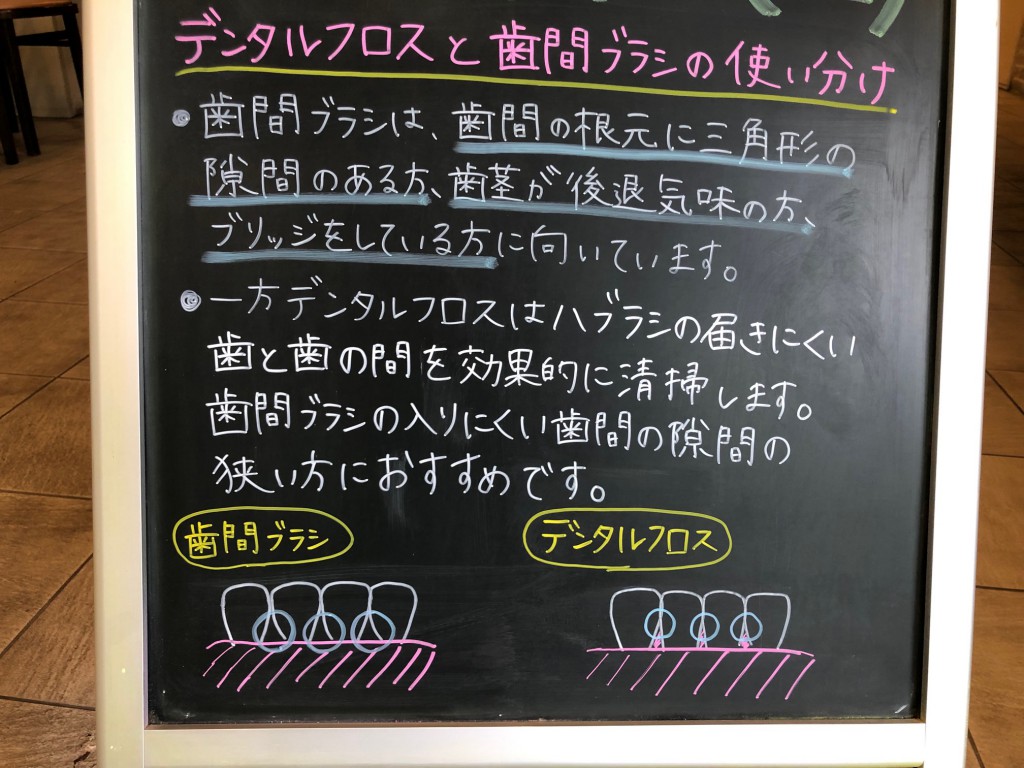 デンタルフロスと歯間ブラシの使い分け
歯間ブラシは、歯間の根元に三角形の
隙間のある方、歯茎が後退気味の方、
ブリッジをしている方に向いています。
一方デンタルフロスはハブラシの届きにくい
歯と歯の間を効果的に清掃します。
歯間ブラシの入りにくい歯間の隙間の
狭い方におすすめです。
歯間ブラシ
デンタルフロス